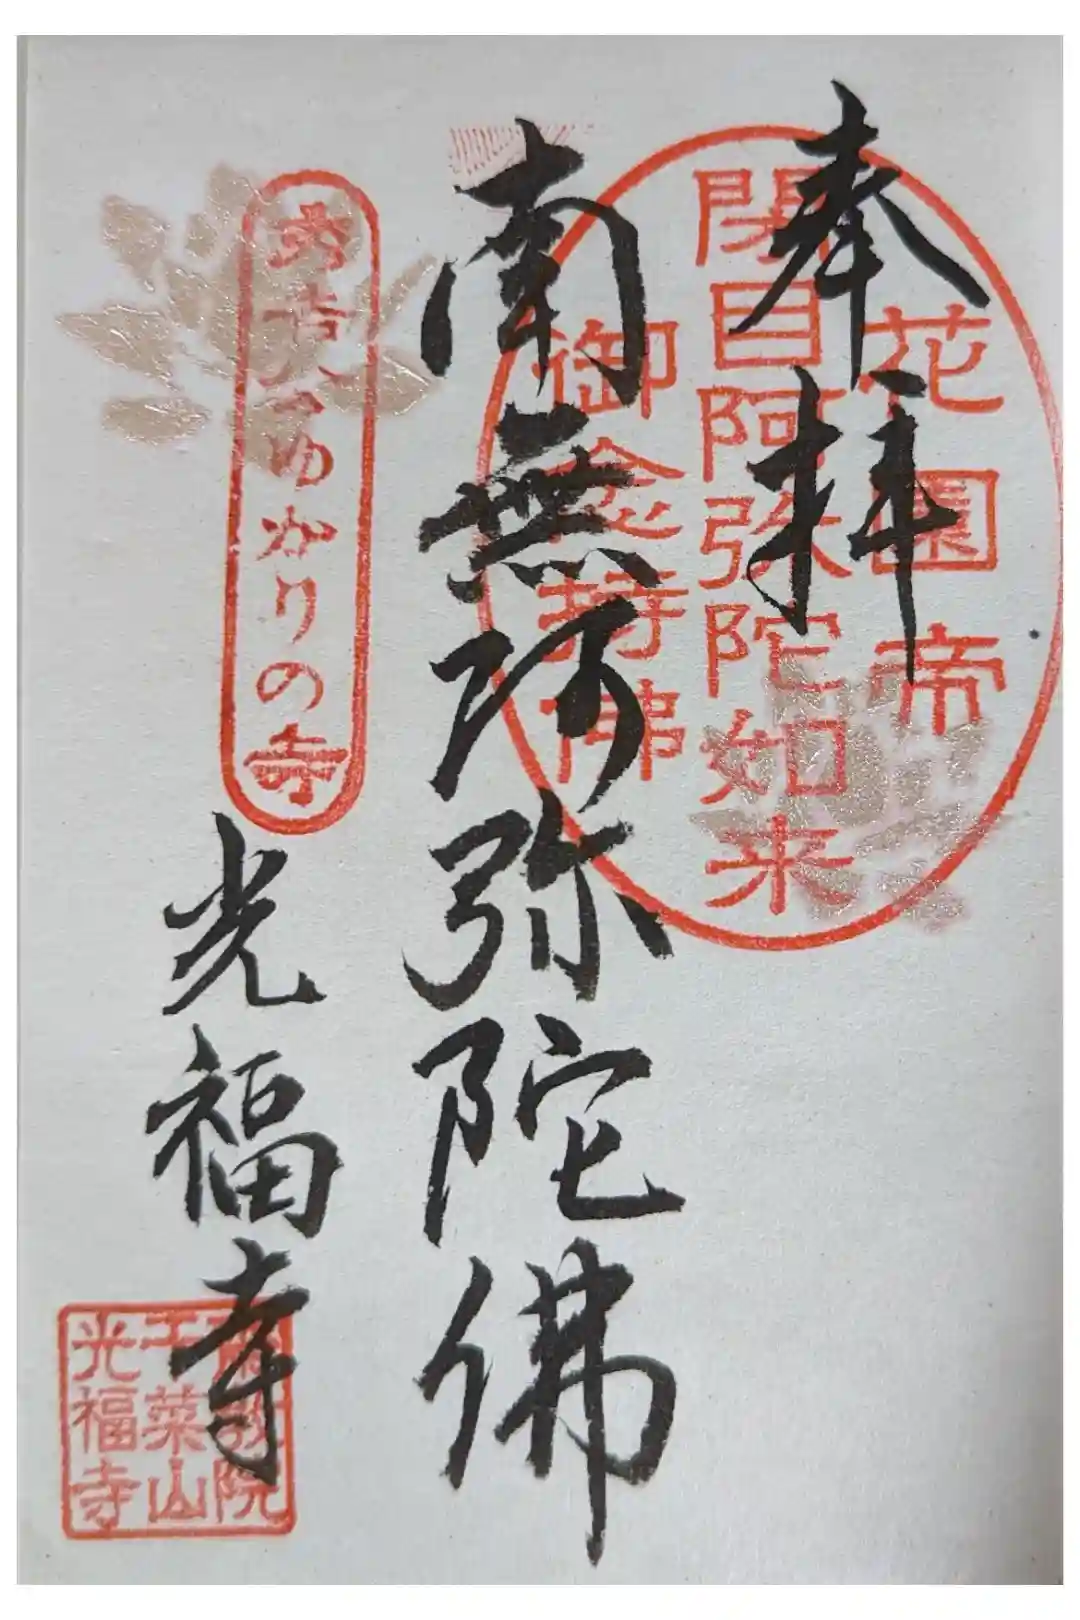 奉拝
花園帝
閉目阿弥陀如来
御念持佛
南無阿弥陀佛
秀吉ゆかりの寺
光福寺
斎教院
干菜山
光福寺